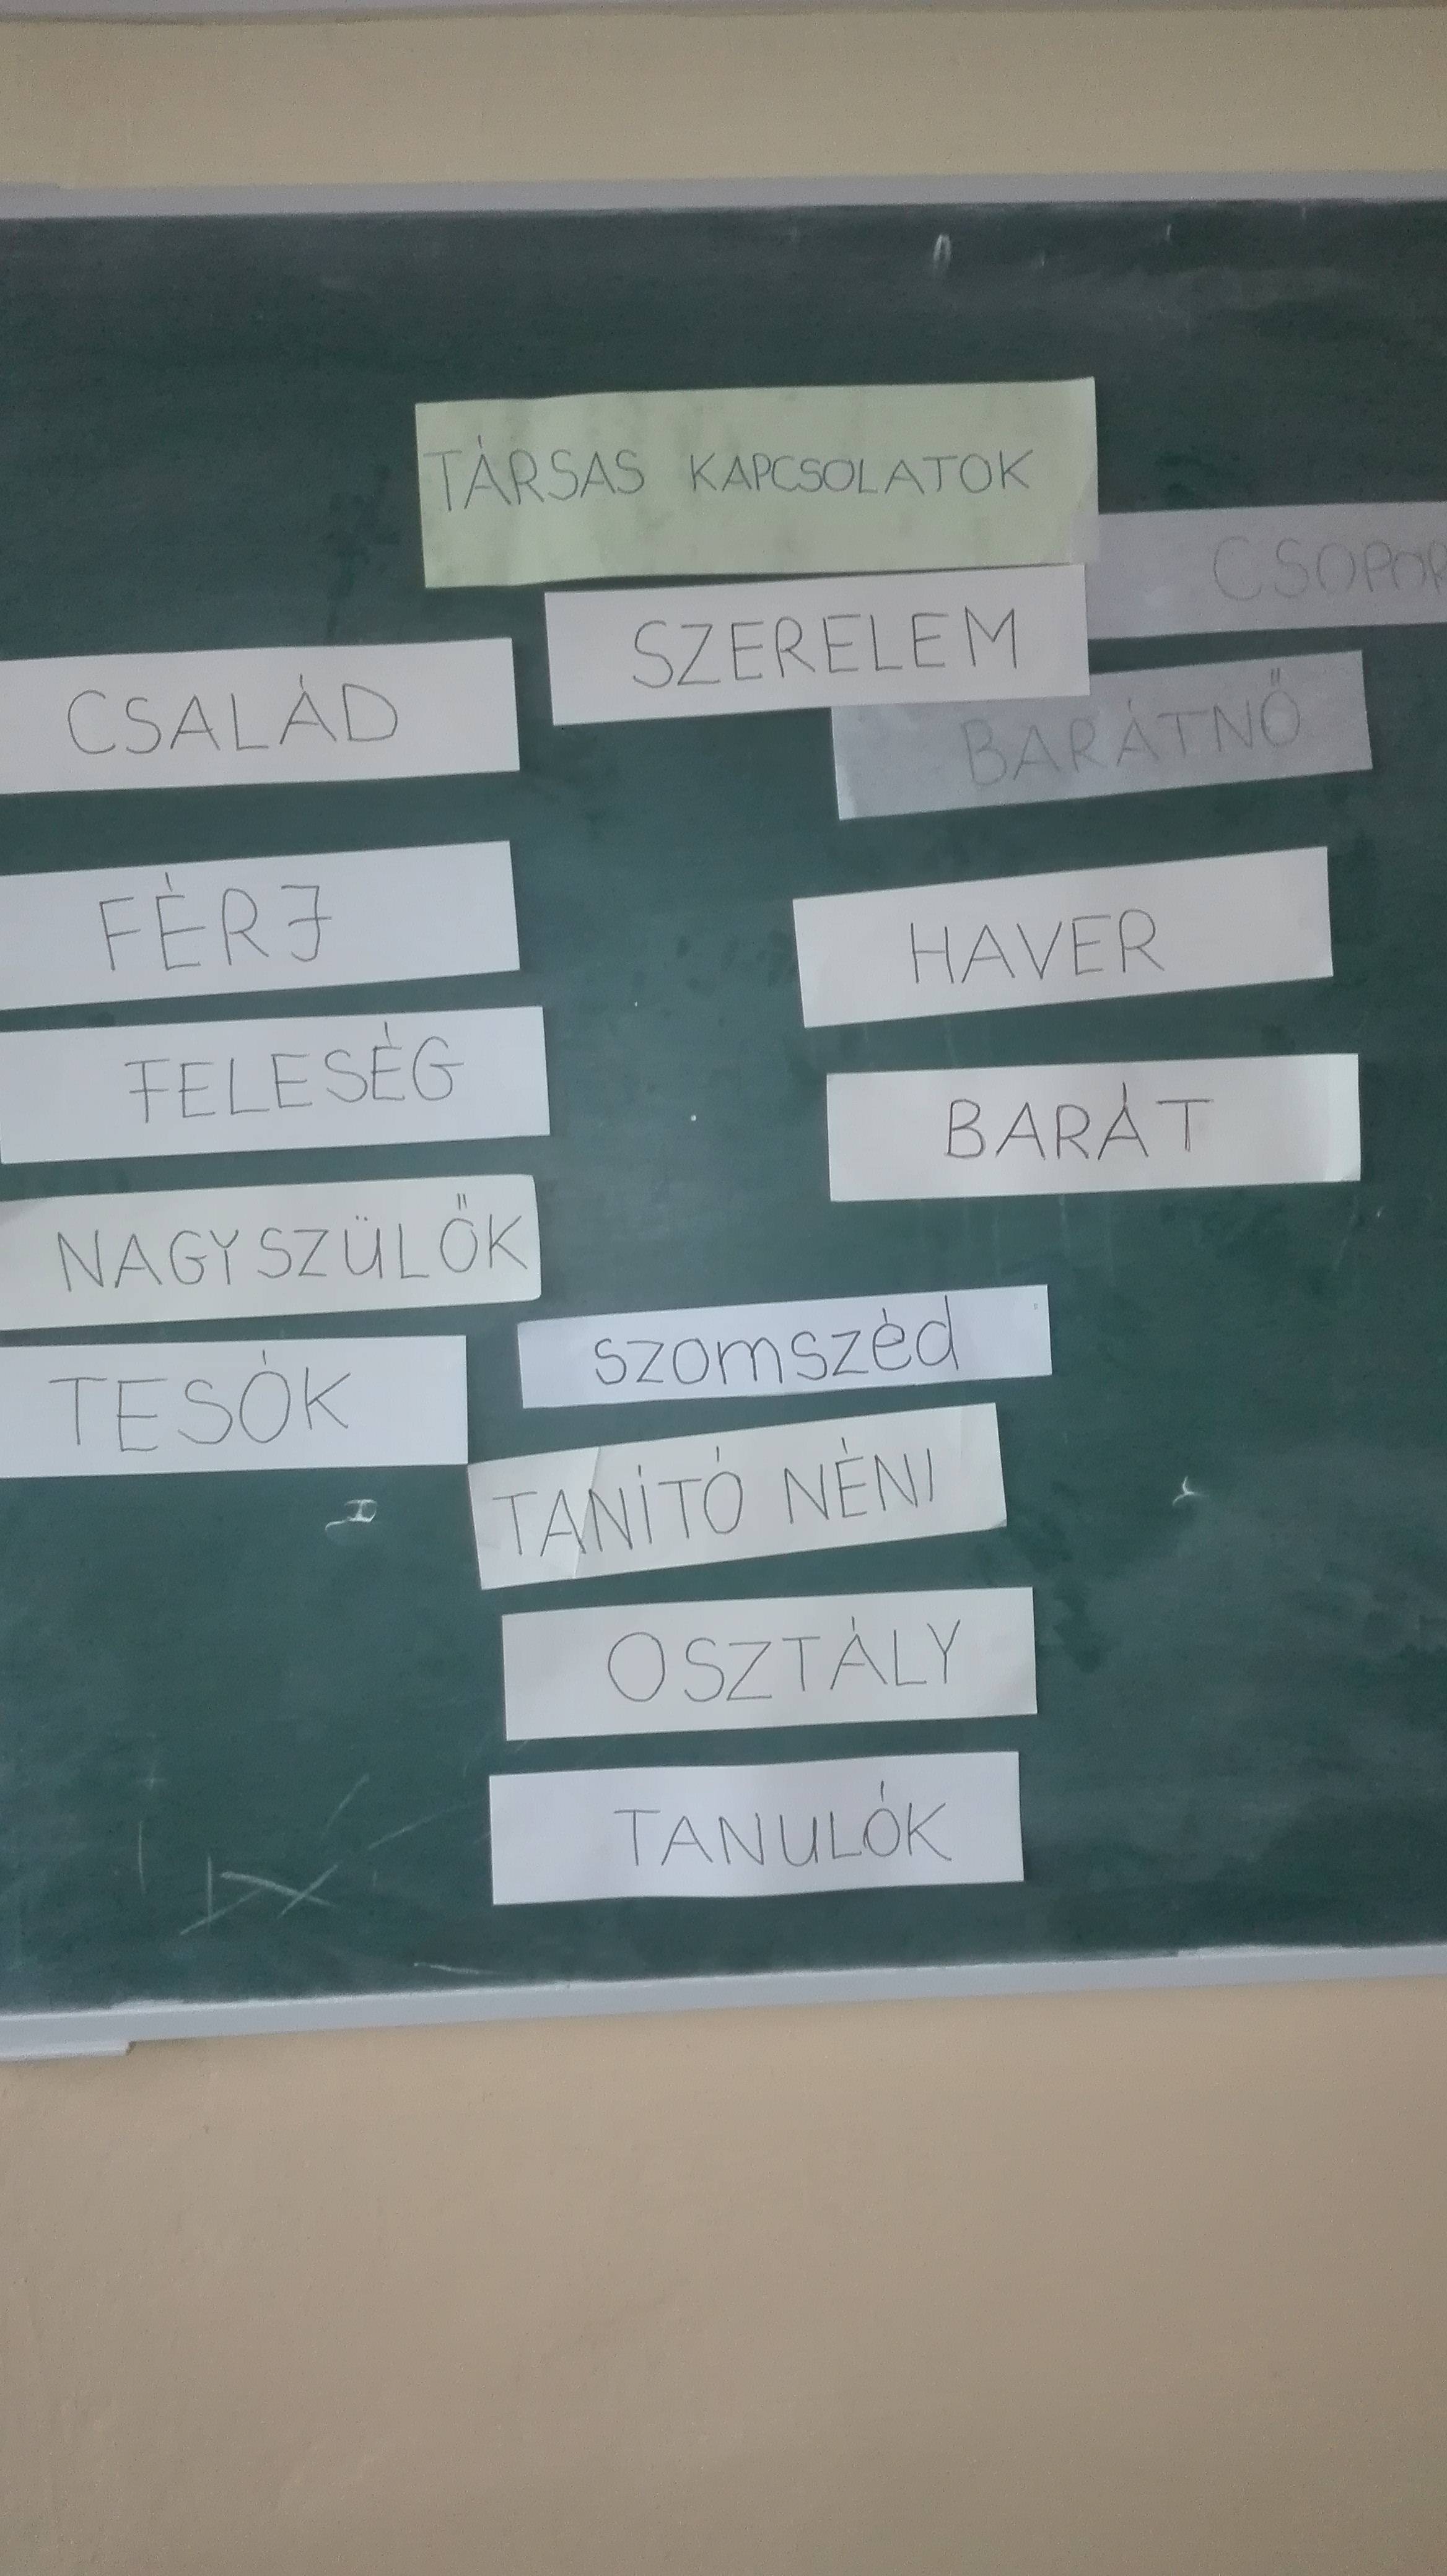 TÁRSAS KAPCSOLATOK
CSOPOR
SZERELEM
BARÁTNŐ
CSALÁD
FÉRJ
FELESÉG
NAGYSZÜLŐK
TESÓK
HAVER
BARÁT
szomszéd
TANÍTÓ NÉNI
OSZTÁLY
TANULÓK